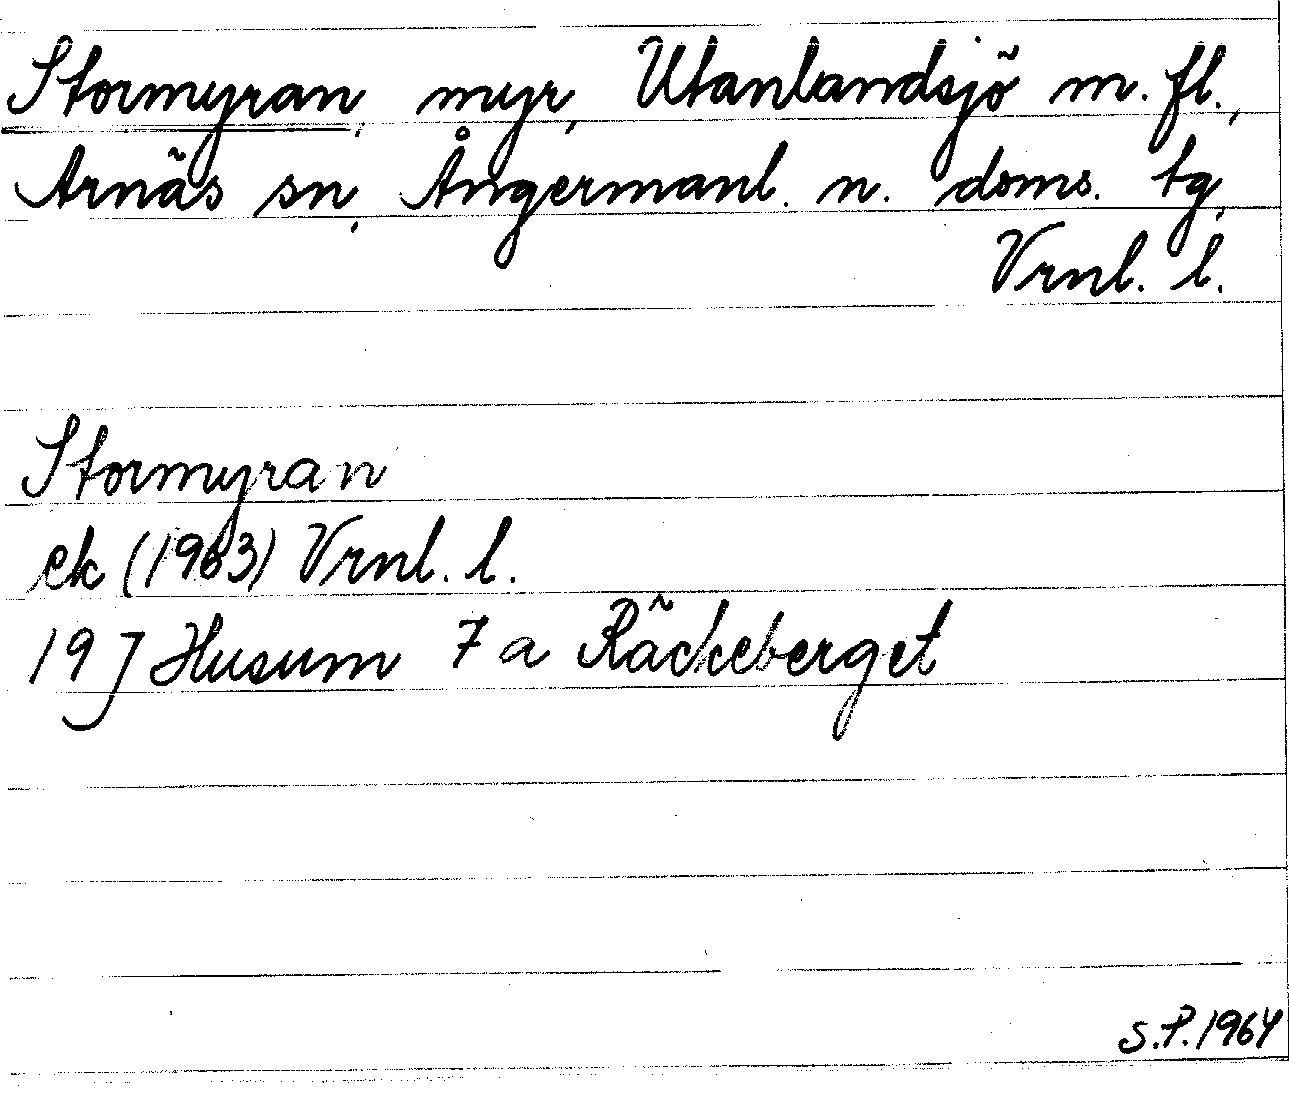 Stormyran, myr, Utanlandsjö m. fl.,
Arnäs sn, Ångermanl. n. doms. tg,
Vrnl. l.
Stormyran
ek (1963) Vrnl. l.
19 J Husum 7 a Räckeberget
S.P. 1964